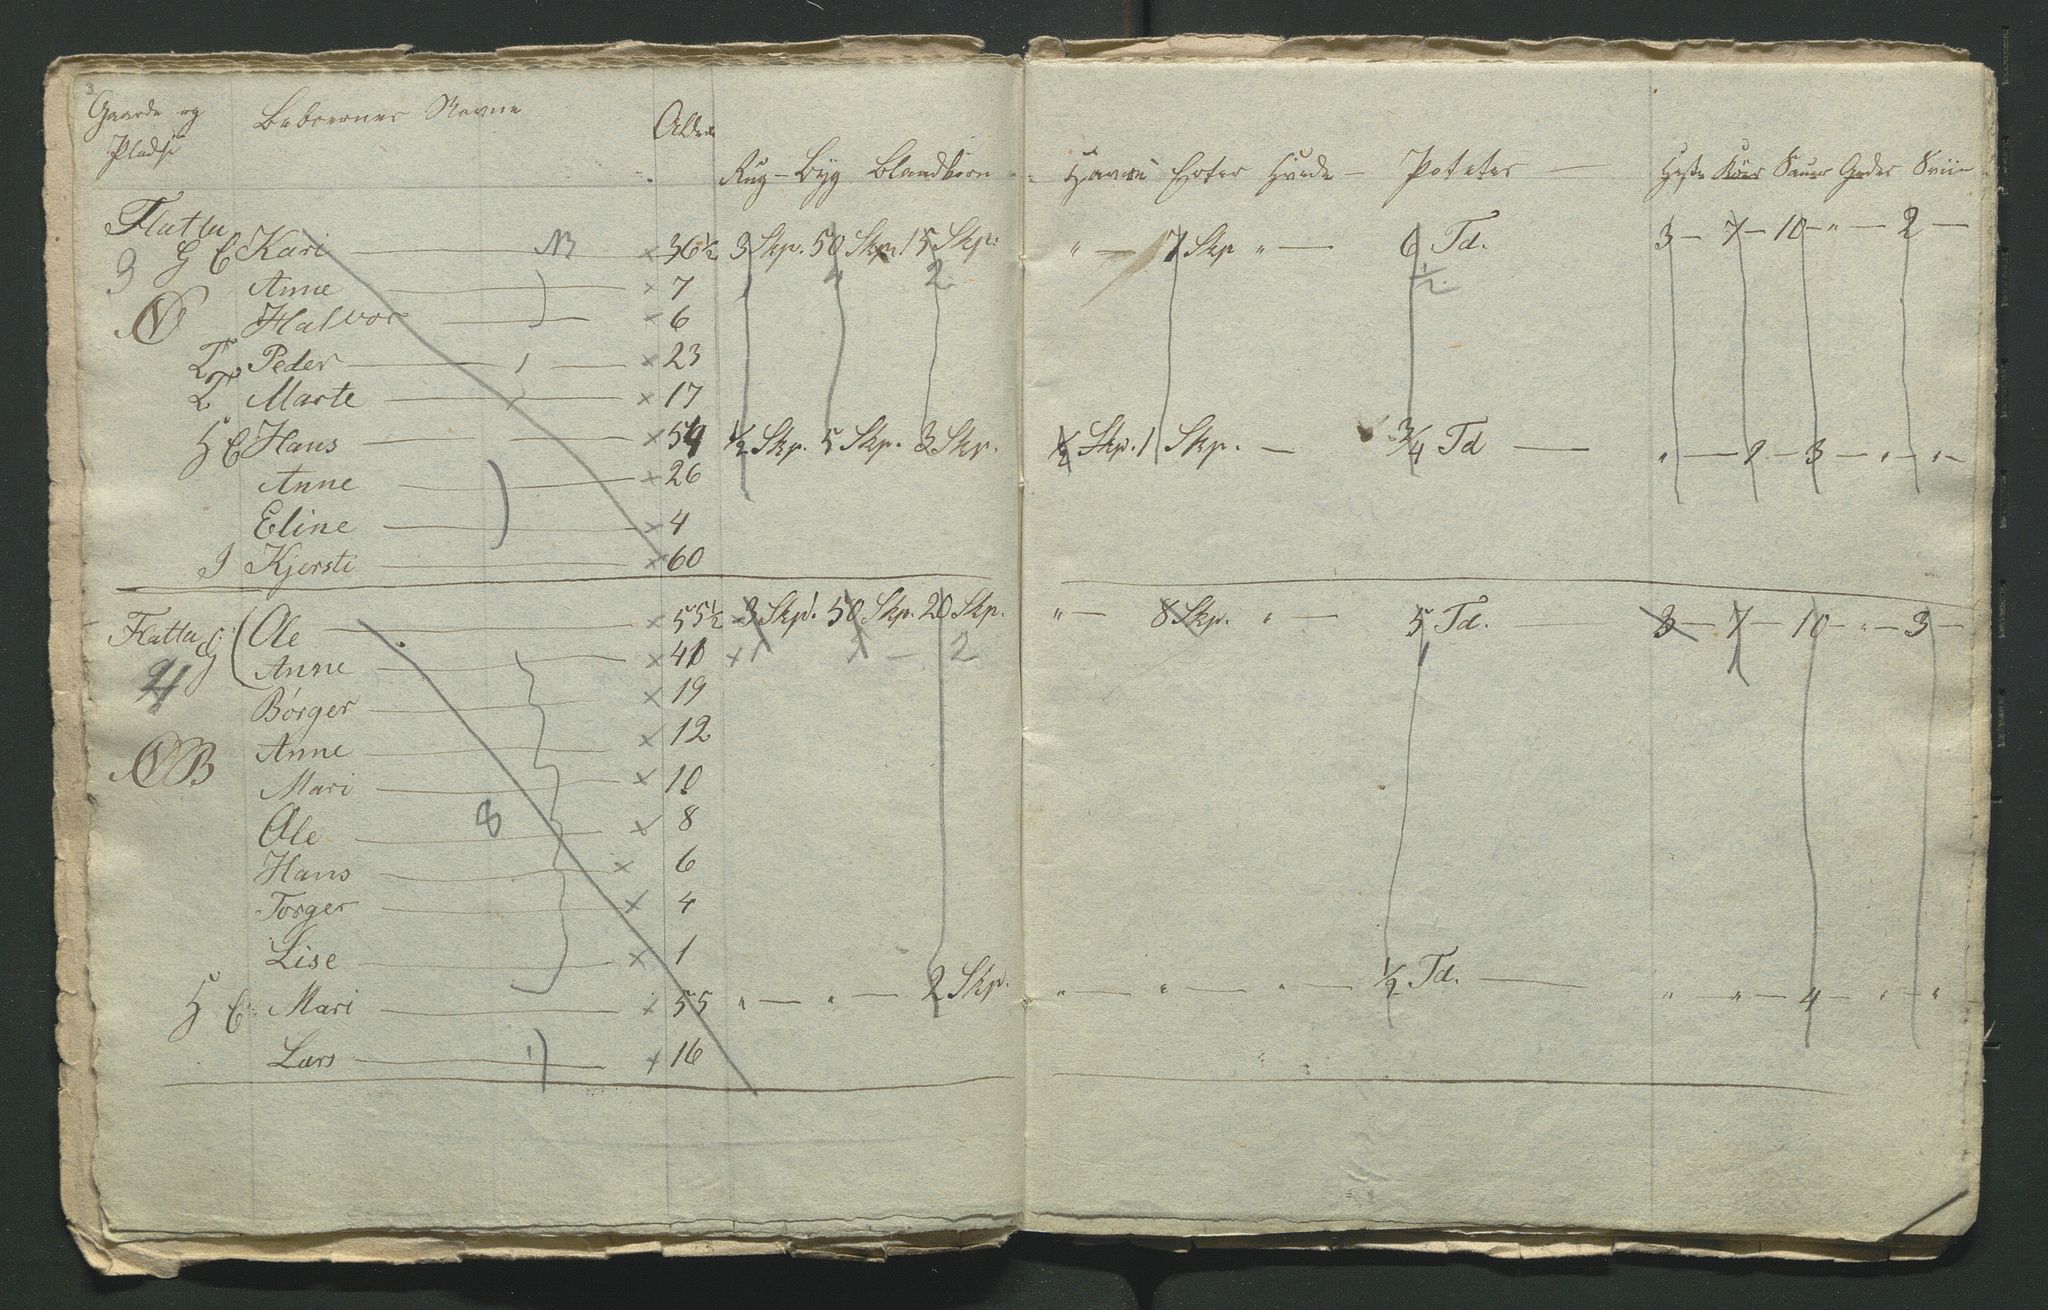 Gaarde og Pladse Beboernes Navne Alder Rug - Byg Blandkorn Havre Erter Hvede - Potetes - Heste Kiør Sauer Geder Sviin
Flattu
3 G E Kari 36½ 3 Skp. 50 Skp. 15 Skp. " - 7 Skp " - 6 Td. 3 - 7 - 10 - " - 2 -
Anne × 7 4 2 ½
N Halvor × 6
T Peder × 23
T Marte × 17
H E Hans × 54 ½ Skp. 5 Skp. 3 Skp. ½ Skp. 1 Skp. - ¾ Td - " - 2 - 3 - " - " -
Anne × 26
Eline × 4
I Kjersti × 60
Flattu G Ole × 55½ 3 Skp. 50 Skp. 20 Skp. " - 8 Skp. " - 5 Td. 3 - 7 - 10 - " - 3 -
4 Anne × 41 × 1 1 - 2 1
Børger × 19
NB Anne × 12
Mari × 10
Ole 8 × 8
Hans × 6
Torger × 4
Lise × 1
H E Mari × 55 " - " - 2 Skp. " - " - " - ½ Td. - " - " - 4 - " - "
Lars 1 × 16